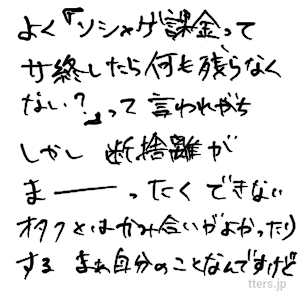 よく『ソシャゲ課金って
サ終したら何も残らなく
ない？』って言われがち
しかし 断捨離が
まーーーったくできない
オタクとはかみ合いがよかったり
する まぁ自分のことなんですけど
tters.jp